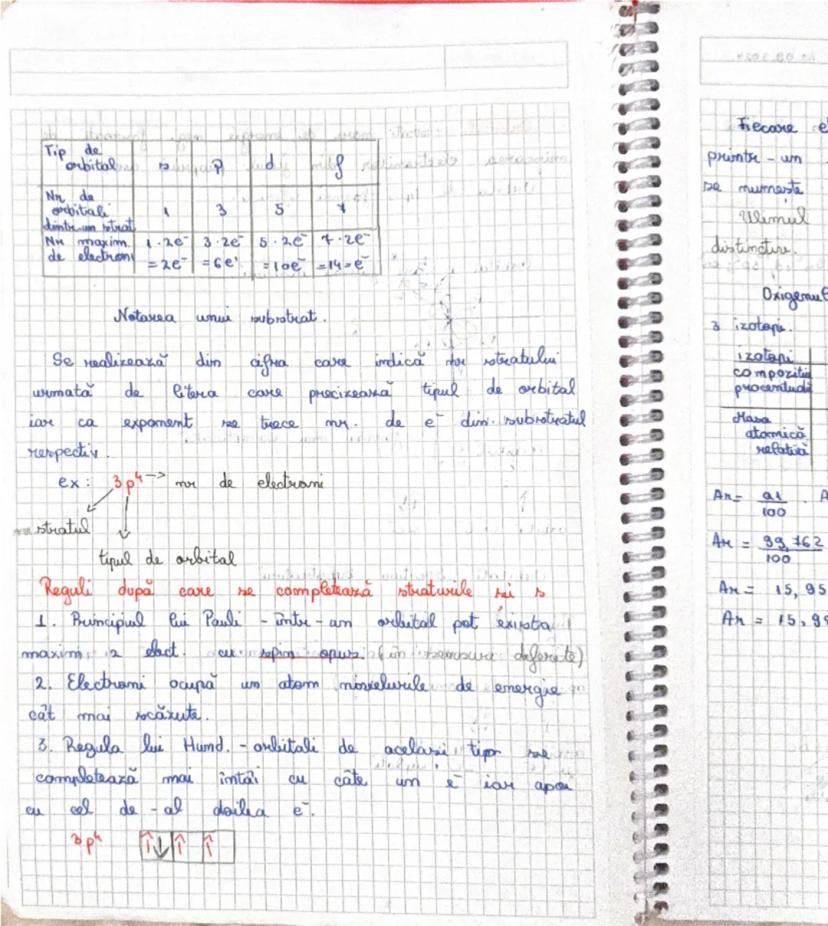 Tip de orbital s p d f
Nr de orbitali dintr-un strat 1 3 5 7
Nr maxim de electroni 1·2e⁻ =2e⁻ 3·2e⁻ =6e⁻ 5·2e⁻ =10e⁻ 7·2e⁻ =14e⁻
Notarea unui substrat.
Se realizează din cifra care indică nr stratului
urmată de litera care precizează tipul de orbital
iar ca exponent se trece nr. de e⁻ din substratul
respectiv.
ex: 3p⁴ → nr de electroni
stratul
tipul de orbital
Reguli după care se completează straturile și s
1. Principiul lui Pauli - într-un orbital pot exista
maxim 2 elect. cu spin opus (în sensuri diferite)
2. Electroni ocupă un atom nivelurile de energie
cât mai scăzute.
3. Regula lui Hund. - orbitali de același tip se
completează mai întâi cu câte un e⁻ iar apoi
cu cel de-al doilea e⁻.
3p⁴ ↑↓ ↑ ↑
Fiecare
printr-un
se numește
Ulimul
distinctive.
Oxigenul
3 izotopi.
izotopi
compoziția
procentuală
Masa
atomică
relativă
Ar= a1/100 · A
Ar = 99,762/100
Ar = 15,95
Ar = 15,9